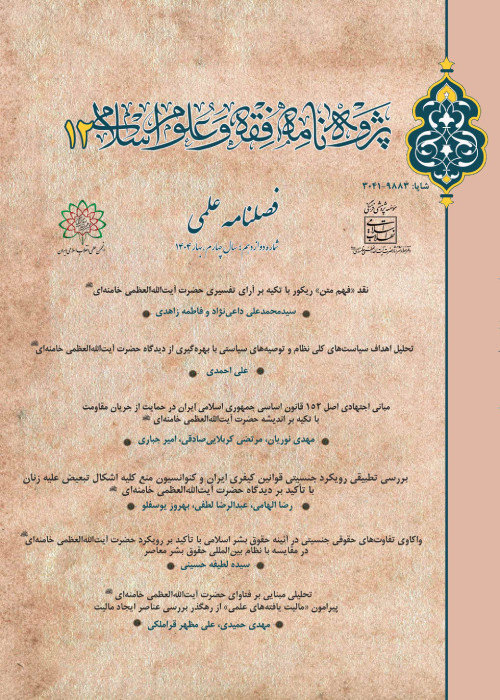 پژوهنامه فقه و علوم اسلامی ۱۲
شاپا: ۹۸۸۳-۳۰۴۱
فصلنامه علمی
شماره دوازدهم، سال چهارم، بهار ۱۴۰۴
نقد «فهم متن» ریکور با تکیه بر آرای تفسیری حضرت آیت‌الله‌العظمی خامنه‌ای
سیدمحمدعلی داعی‌نژاد و فاطمه زاهدی
تحلیل اهداف سیاست‌های کلی نظام و توصیه‌های سیاستی با بهره‌گیری از دیدگاه حضرت آیت‌الله‌العظمی خامنه‌ای
علی احمدی
مبانی اجتهادی اصل ۱۵۲ قانون اساسی جمهوری اسلامی ایران در حمایت از جریان مقاومت
با تکیه بر اندیشه حضرت آیت‌الله‌العظمی خامنه‌ای
مهدی نوریان، مرتضی کربلایی‌صادقی، امیر جباری
بررسی تطبیقی رویکرد جنسیتی قوانین کیفری ایران و کنوانسیون منع کلیه اشکال تبعیض علیه زنان
با تأکید بر دیدگاه حضرت آیت‌الله‌العظمی خامنه‌ای
رضا الهامی، عبدالرضا لطفی، بهروز یوسفلو
واکاوی تفاوت‌های حقوقی جنسیتی در آئینه حقوق بشر اسلامی با تأکید بر رویکرد حضرت آیت‌الله‌العظمی خامنه‌ای
در مقایسه با نظام بین‌المللی حقوق بشر معاصر
سیده لطیفه حسینی
تحلیلی مبنایی بر فتاوای حضرت آیت‌الله‌العظمی خامنه‌ای
پیرامون «مالیت یافته‌های علمی» از رهگذر بررسی عناصر ایجاد مالیت
مهدی حمیدی، علی مظهر قراملکی